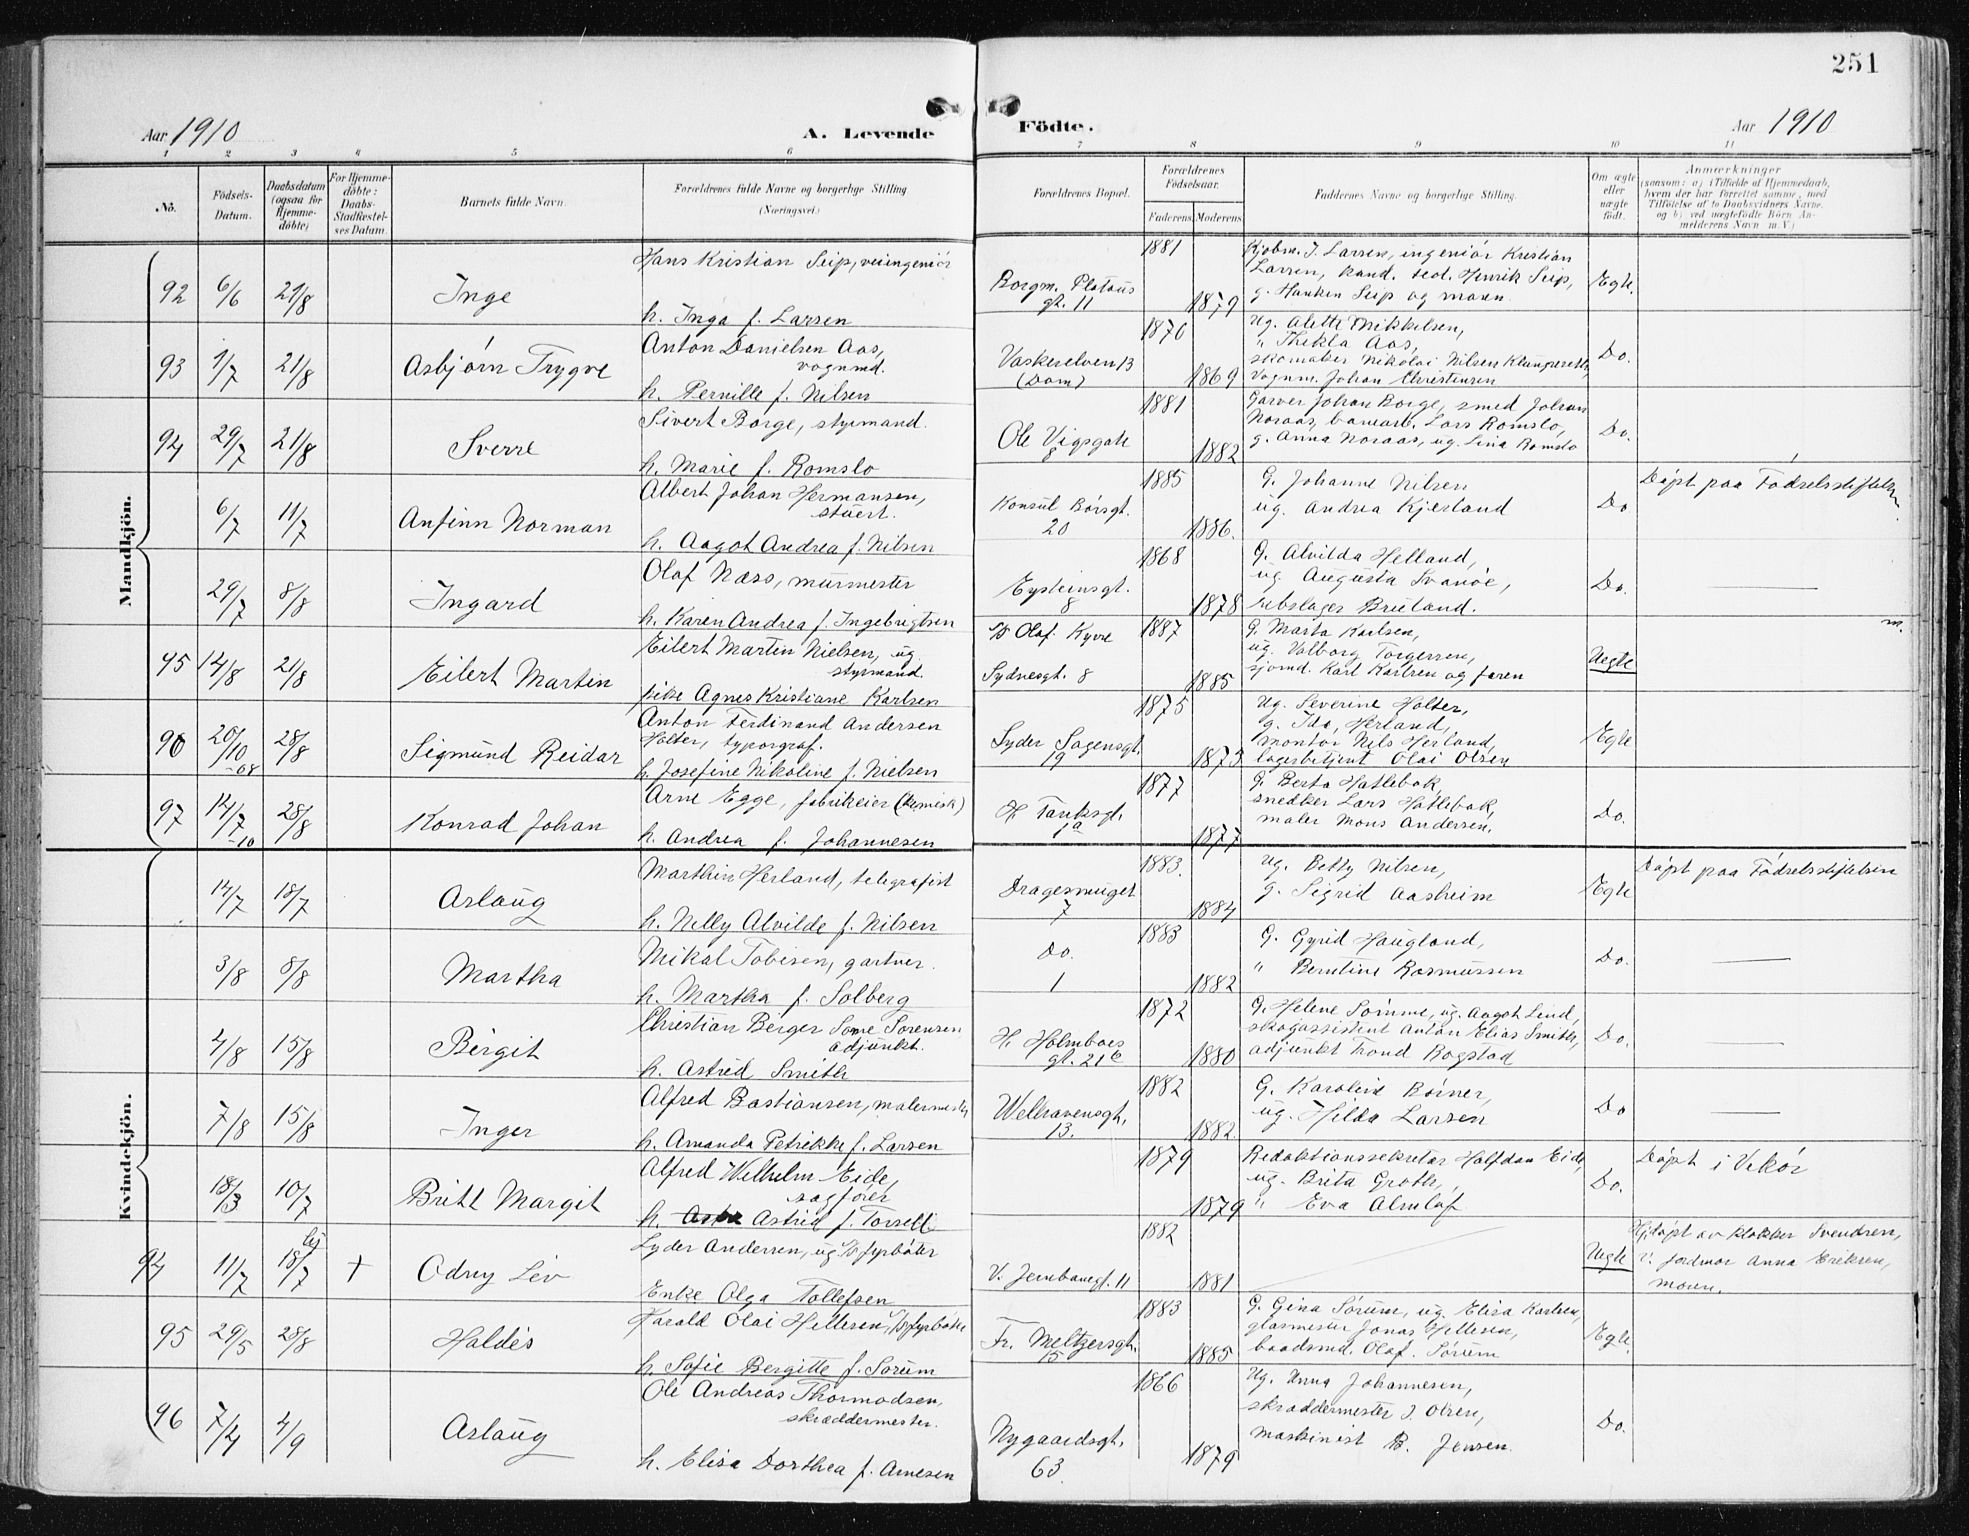 251
Aar 1910
A. Levende
Födte.
Aar 1910
1 2 3 4 5 6 7 8 9 10 11
No.
Födsels-
Datum.
Daabsdatum
(ogsaa for
Hjemme-
döbte)
For Hjemme-
döbte:
Daabs-
Stadfæstel-
ses Datum.
Barnets fulde Navn.
Forældrenes fulde Navne og borgerlige Stilling
(Næringsvei.)
Forældrenes Bopæl.
Forældrenes
Födselsaar.
Faderens Moderens
Faddernes Navne og borgerlige Stilling.
Om ægte
eller
uægte
födt.
Anmærkninger
(saasom: a) i Tilfælde af Hjemmedaab,
hvem der har forrettet samme, med
Tilföielse af to Daabsvidners Navne.
og b) ved uægtefödte Börn An-
melderens Navn m.V.)
Mandkjön.
92 6/6 21/8 Inge
Hans Kristian Seip, veiingeniør
h. Inga f. Larsen
Borgm. Platous
gt. 11
1881
1879
Kjøbm. J. Larsen, ingeniør Kristian
Larsen, kand. teol. Henrik Seip,
g. Hanken Seip og moren.
Egte.
93 1/7 21/8 Asbjørn Trygve
Anton Danielsen Aas,
vognmd.
h. Pernille f. Nilsen
Vaskerelven 13
(Dom)
1870
1869
Ug. Alette Mikkelsen,
" Thekla Aas,
skomaker Nikolai Nilsen
Vognm. Johan Christensen
Do.
94 29/7 21/8 Sverre
Sivert Borge, styrmand.
h. Marie f. Romslo
Ole Vigsgate
8
1881
1882
Garver Johan Borge, smed Johan
Noraas, banearb. Lars Romslo,
g. Anna Noraas, ug. Lina Romslo
Do.
6/7 11/7 Anfinn Norman
Albert Johan Hermansen,
stuert.
h. Aagot Andrea f. Nilsen
Konsul Børsgt.
20
1885
1886.
G. Johanne Nilsen
ug. Andrea Kjerland
Do
Døpt paa Fødselsstiftelsen
29/7 8/8 Ingard
Olaf Næss, murmester
h. Karen Andrea f. Ingebrigtsen
Eysteinsgt.
8
1868
1878
G. Alvilda Helland,
ug. Augusta Svanøe,
rebslager Bruland.
Do.
95 14/8 21/8 Eilert Martin
Eilert Martin Nielsen, ug.
styrmand.
pike Agnes Kristiane Karlsen
D/S Olaf Kyrre
Sydnesgt. 8
1887
1885
G. Marta Karlsen,
ug. Valborg Torgersen,
sjømd. Karl Karlsen og faren
Uegte
m.
96 20/10 -08 28/8 Sigmund Reidar
Anton Ferdinand Andersen
Holter, typograf.
h. Josefine Nikoline f. Nielsen
Lyder Sagensgt.
19
1875
1873
Ug. Severine Holter,
g. Ida Herland,
montør Nils Herland,
lagerbetjent Olai Olsen
Egte
97 14/7 -10 28/8 Konrad Johan
Arne Egge, fabrikeier (kemisk)
h. Andrea f. Johannesen
H Tanksgt.
1a
1877
1877
G. Berta Hatlebak,
snedker Lars Hatlebak,
maler Mons Andersen.
Do.
Kvindekjön.
14/7 18/7 Aslaug
Marthin Herland, telegrafist
h. Nelly Alvilde f. Nilsen
Dragesmuget
7
1883.
1884
Ug. Betty Nilsen,
g. Sigrid Aasheim
Egte
Døpt paa Fødselsstiftelsen
3/8 8/8 Martha
Mikal Tobisen, gartner.
h. Martha f. Solberg
Do.
1
1883
1882
G. Gyrid Haugland,
" Berntine Rasmussen
Do.
4/8 15/8 Bergit
Christian Berger Some Sørensen
adjunkt.
h. Astrid Smith
H. Holmboes
gt. 21b
1872
1880
G. Helene Sømme, ug. Aagot Lind,
skogassistent Anton Elias Smith,
adjunkt Trond Rogstad
Do.
7/8 15/8 Inger
Alfred Bastiansen, malermester
h. Amanda Petrikke f. Larsen
Welhavensgt.
13.
1882
1882.
G. Karoline Børner,
ug. Hilda Larsen
Do
18/3 10/7 Britt Margit
Alfred Wilhelm Eide,
sagfører
h. Astrid f. Torsell
1879
1879
Redaktionssekretær Halfdan Eide,
ug. Brita Groth,
" Eva Almløf
Do.
Døpt i Vikør
94 11/7 hj 18/7 + Odny Liv
Lyder Andersen, ug. D/S fyrbøter
Enke Olga Tollefsen
V. Jernbanegt. 11
1882
1881
Uegte
Hj. døpt av klokker Svendsen,
V. jordmor Anna Eriksen,
moren.
95 29/5 28/8 Haldis
Harald Olai Hellesen, D/S fyrbøter
h. Sofie Bergitte f. Sørum
Fr. Meltzersgt.
15
1883
1885
G. Gina Sørum, ug. Elisa Karlsen,
glasmester Jonas Hellesen,
baadsmd. Olaf Sørum
Egte.
96 7/4 4/9 Aslaug
Ole Andreas Thormodsen,
skræddermester.
h. Elisa Dorthea f. Arnesen
Nygaardsgt.
63.
1866
1879
Ug. Anna Johannesen,
skræddermester J. Olsen,
maskinist B. Jensen.
Do.